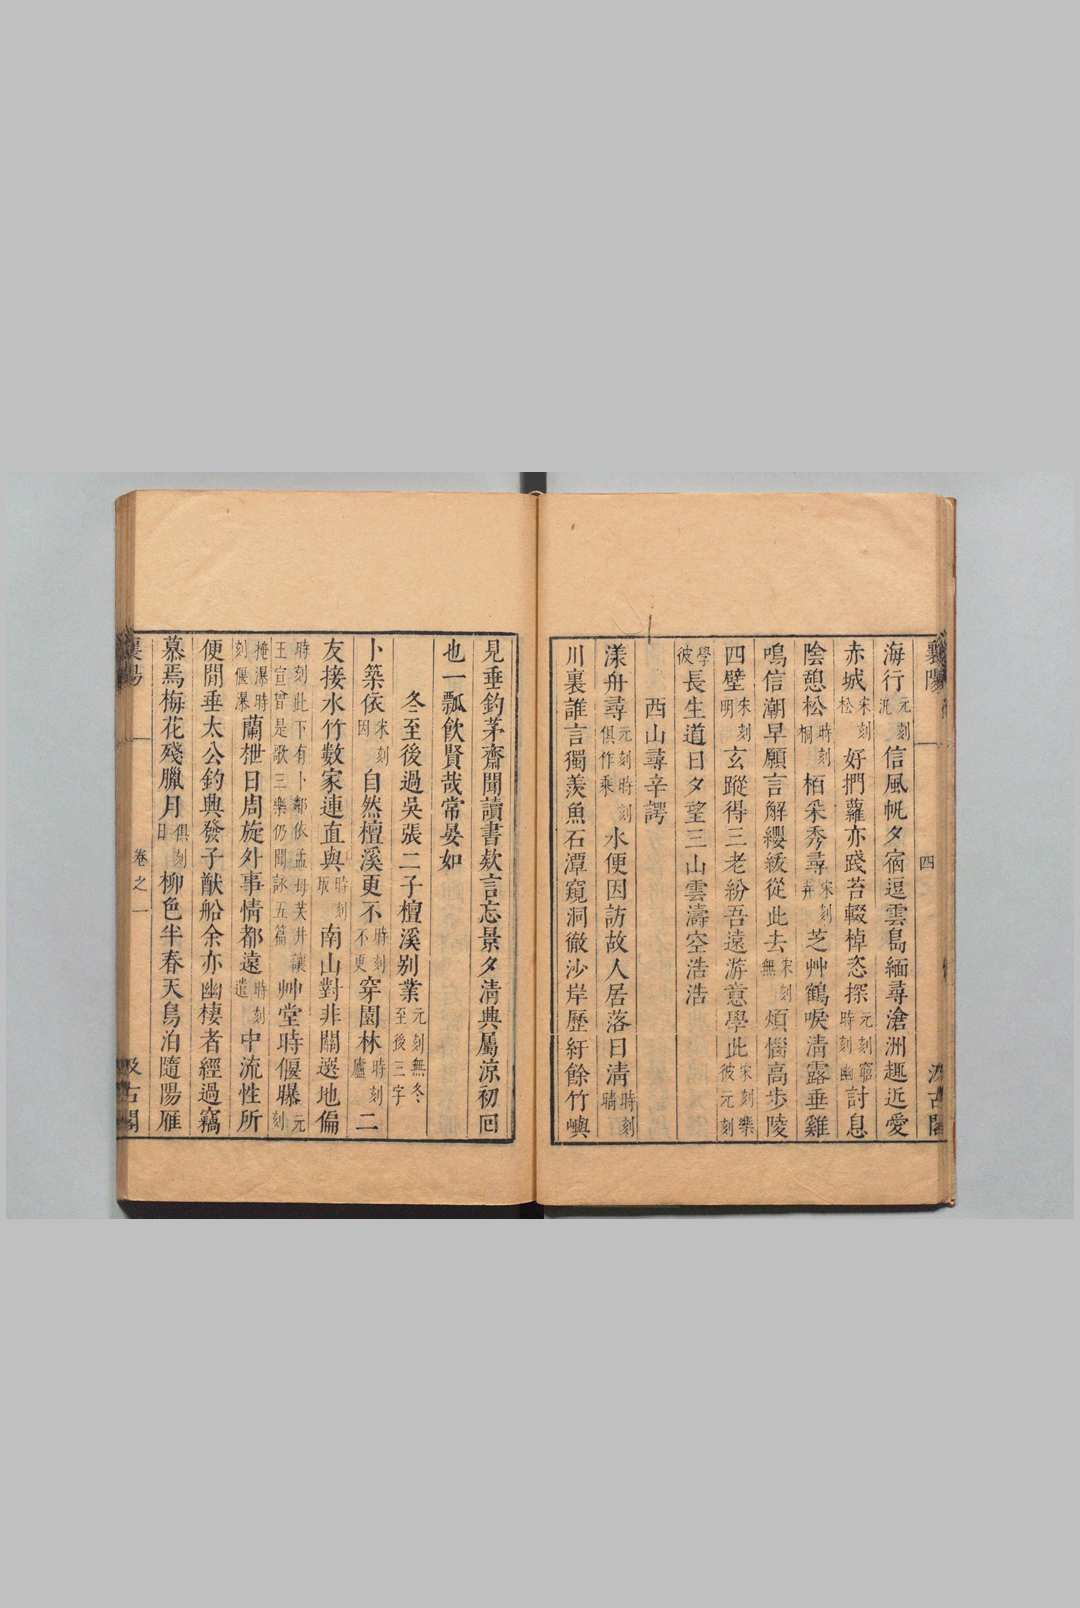 海行元刻汎信風帆夕宿逗雲島緬尋滄洲趣近愛
赤城宋刻松好捫蘿亦踐苔輟棹恣探元刻窮時刻幽討息
陰憩松時刻桐栢采秀尋宋刻弄芝艸鶴唳清露垂雞
鳴信潮早願言解纓紱從此去宋刻無煩惱高步陵
四壁宋刻明玄蹤得三老紛吾遠游意學此宋刻樂彼元刻
學彼長生道日夕望三山雲濤空浩浩
西山尋辛諤
漾舟尋元刻時刻俱作乘水便因訪故人居落日清時刻晴
川裏誰言獨羨魚石潭窺洞徹沙岸歷紆餘竹嶼
四
汲古閣
見垂釣茅齋聞讀書欵言忘景夕清興屬涼初回
也一瓢飲賢哉常晏如
冬至後過吳張二子檀溪別業元刻無冬至後三字
卜築依宋刻因自然檀溪更不時刻不更穿園林時刻廬二
友接水竹數家連直與時刻取南山對非關選地偏
時刻此下有卜鄰依孟母共井讓王宣曾是歌三樂仍聞詠五篇艸堂時偃曝元刻
掩瀑時刻偃瀑蘭枻日周旋外事情都遠時刻遣中流性所
便閒垂太公釣興發子猷船余亦幽棲者經過竊
慕焉梅花殘臘月俱刻日柳色半春天鳥泊隨陽雁
襄陽
卷之一